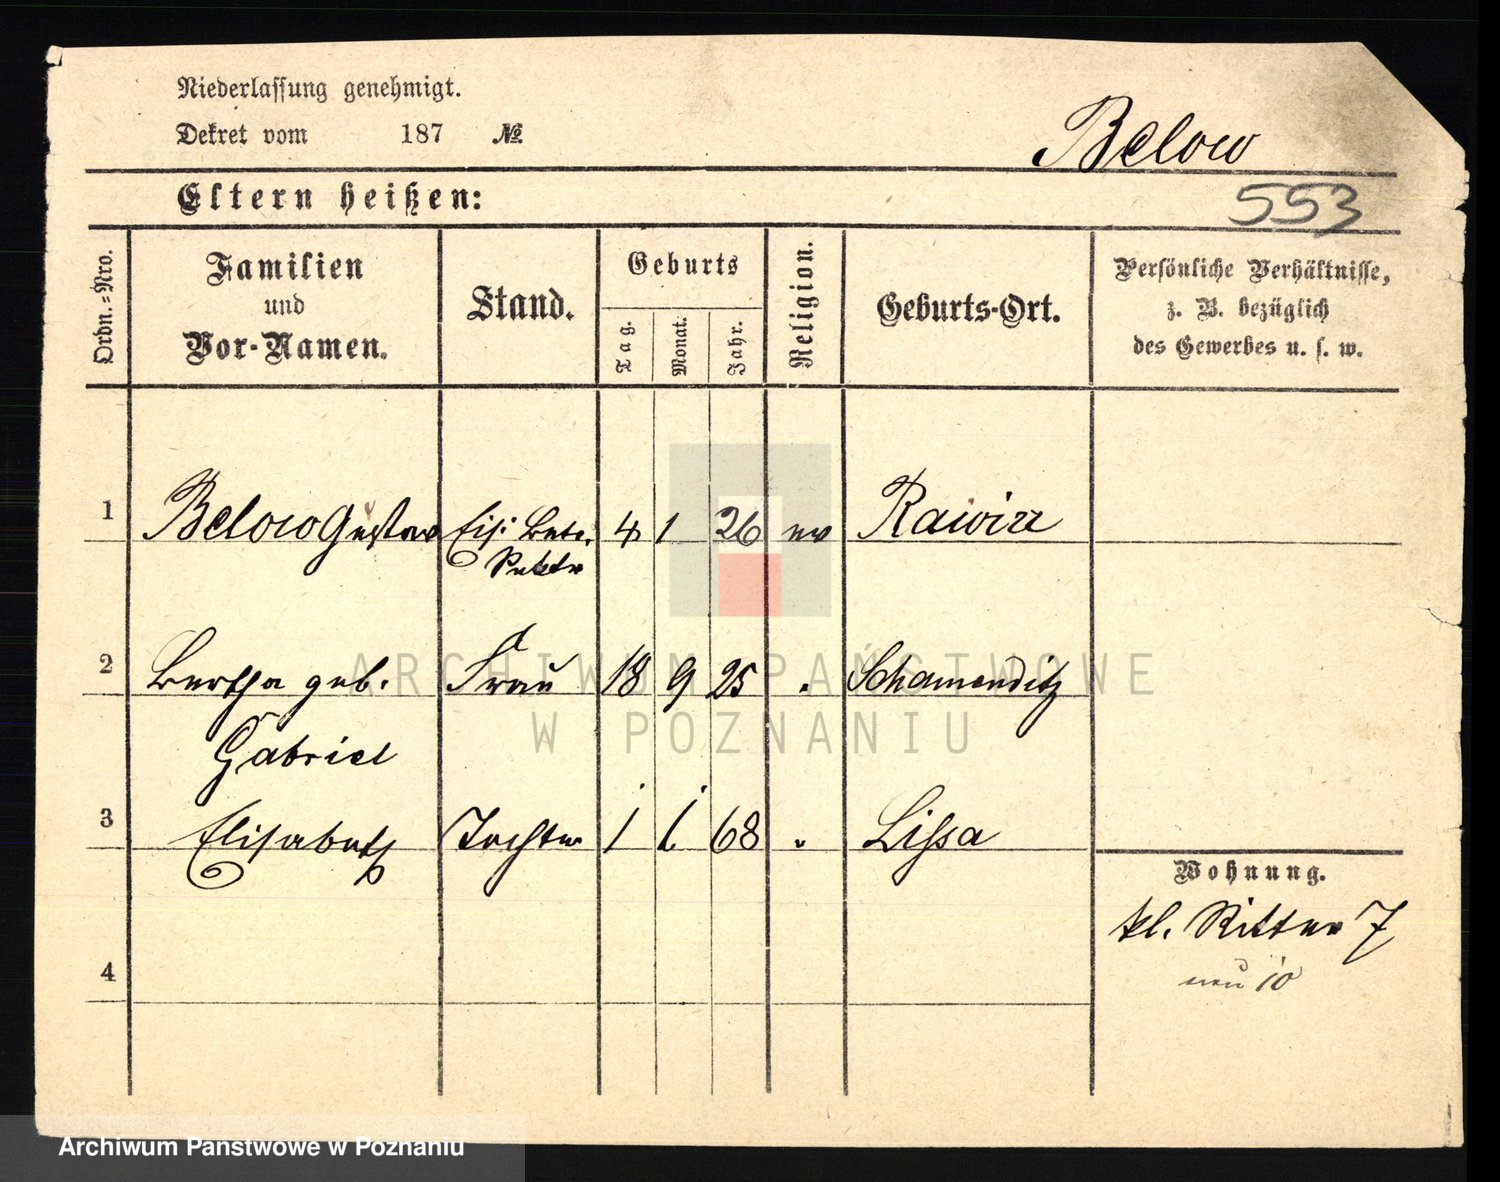 Niederlassung genehmigt.
Dekret vom 187 №
Below
Eltern heißen:
553
Ordn.=Nro.
Familien
und
Vor-Namen.
Stand.
Geburts
Tag.
Monat.
Jahr.
Religion.
Geburts-Ort.
Persönliche Verhältnisse,
z. B. bezüglich
des Gewerbes u. s. w.
1 Below Gustav Eis: 4 1 26 ev Rawicz
2 Bertha geb. Frau 18 9 25 " Schamenditz
Gabriel
3 Elisabeth Tochter 1 1 68 " Lissa
Wohnung.
kl. Ritter 7
neu 10
4
ARCHIWUM PAŃSTWOWE
W POZNANIU
Archiwum Państwowe w Poznaniu